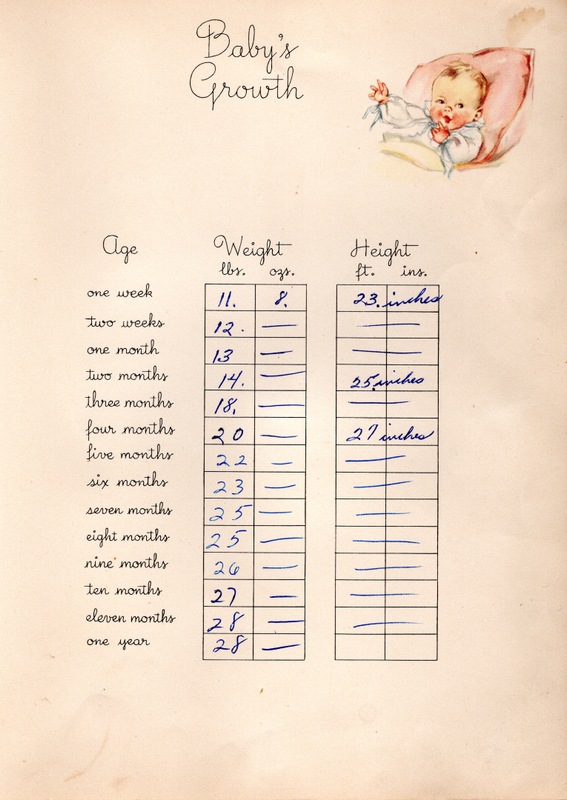 Baby's
Growth
Age Weight Height
lbs. ozs. ft. ins.
one week 11. 8. 23. inches
two weeks 12. —
one month 13 — —
two months 14. — 25 inches
three months 18. — —
four months 20 — 27 inches
five months 22 — —
six months 23 — —
seven months 25 — —
eight months 25 — —
nine months 26 — —
ten months 27 — —
eleven months 28 — —
one year 28 —